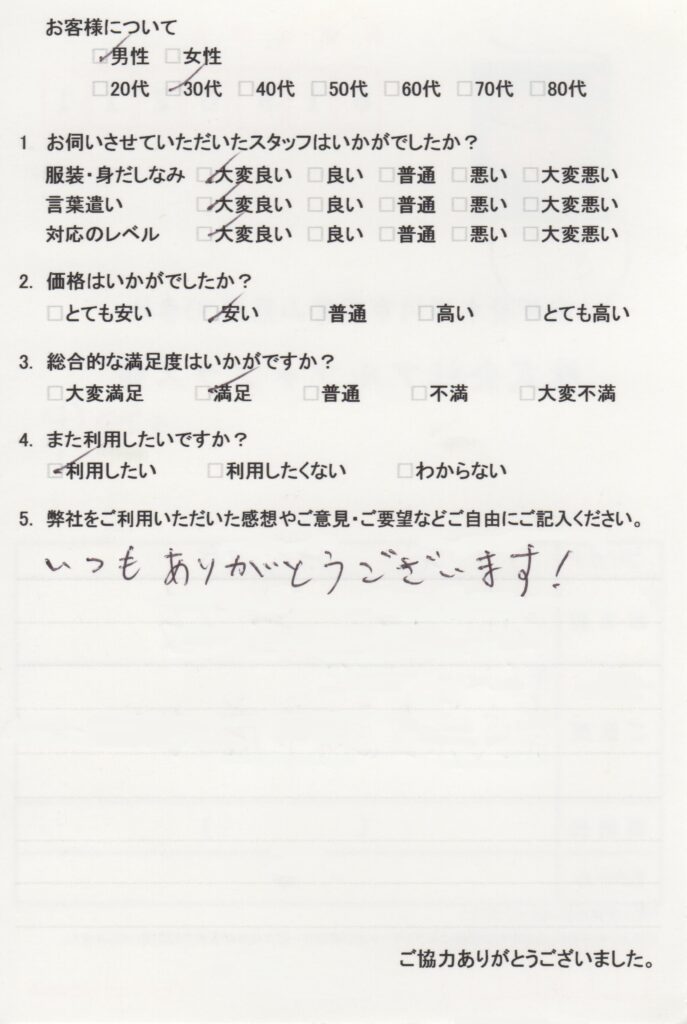 お客様について
☑男性 □女性
□20代 ☑30代 □40代 □50代 □60代 □70代 □80代
1 お伺いさせていただいたスタッフはいかがでしたか？
服装・身だしなみ ☑大変良い □良い □普通 □悪い □大変悪い
言葉遣い ☑大変良い □良い □普通 □悪い □大変悪い
対応のレベル ☑大変良い □良い □普通 □悪い □大変悪い
2. 価格はいかがでしたか？
□とても安い ☑安い □普通 □高い □とても高い
3. 総合的な満足度はいかがですか？
□大変満足 ☑満足 □普通 □不満 □大変不満
4. また利用したいですか？
☑利用したい □利用したくない □わからない
5. 弊社をご利用いただいた感想やご意見・ご要望などご自由にご記入ください。
いつもありがとうございます!
ご協力ありがとうございました。